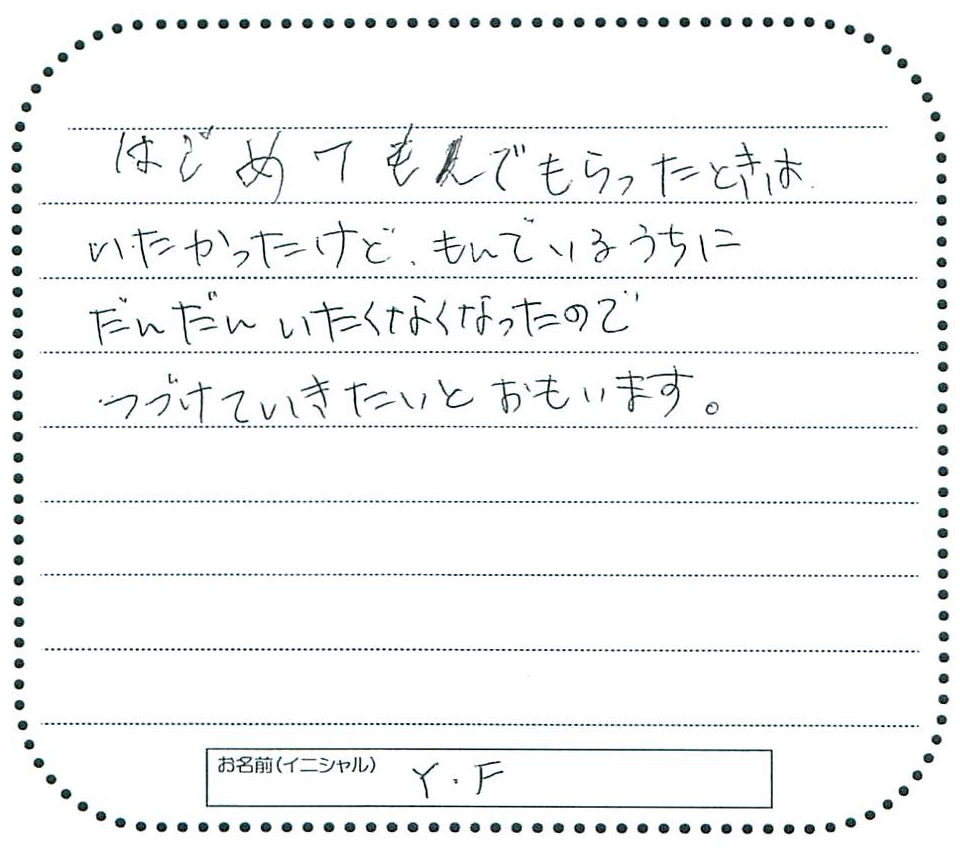 はじめてもんでもらったときは
いたかったけど、もんでいるうちに
だんだんいたくなくなったので
つづけていきたいとおもいます。
お名前(イニシャル) Y.F